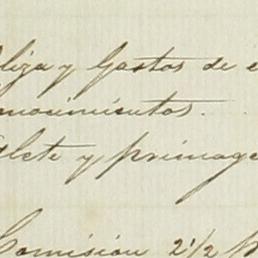 liza y Gastos de e
nocimientos.
Flete y primage
Comisión 2 1/2 p